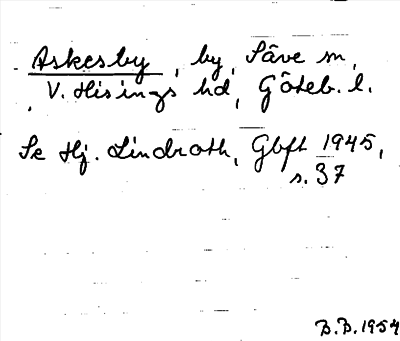 Askesby, by, Säve sn,
V. Hisings hd, Göteb. l.
Se Hj. Lindroth, Gbft 1945,
s. 37
B.B. 1954